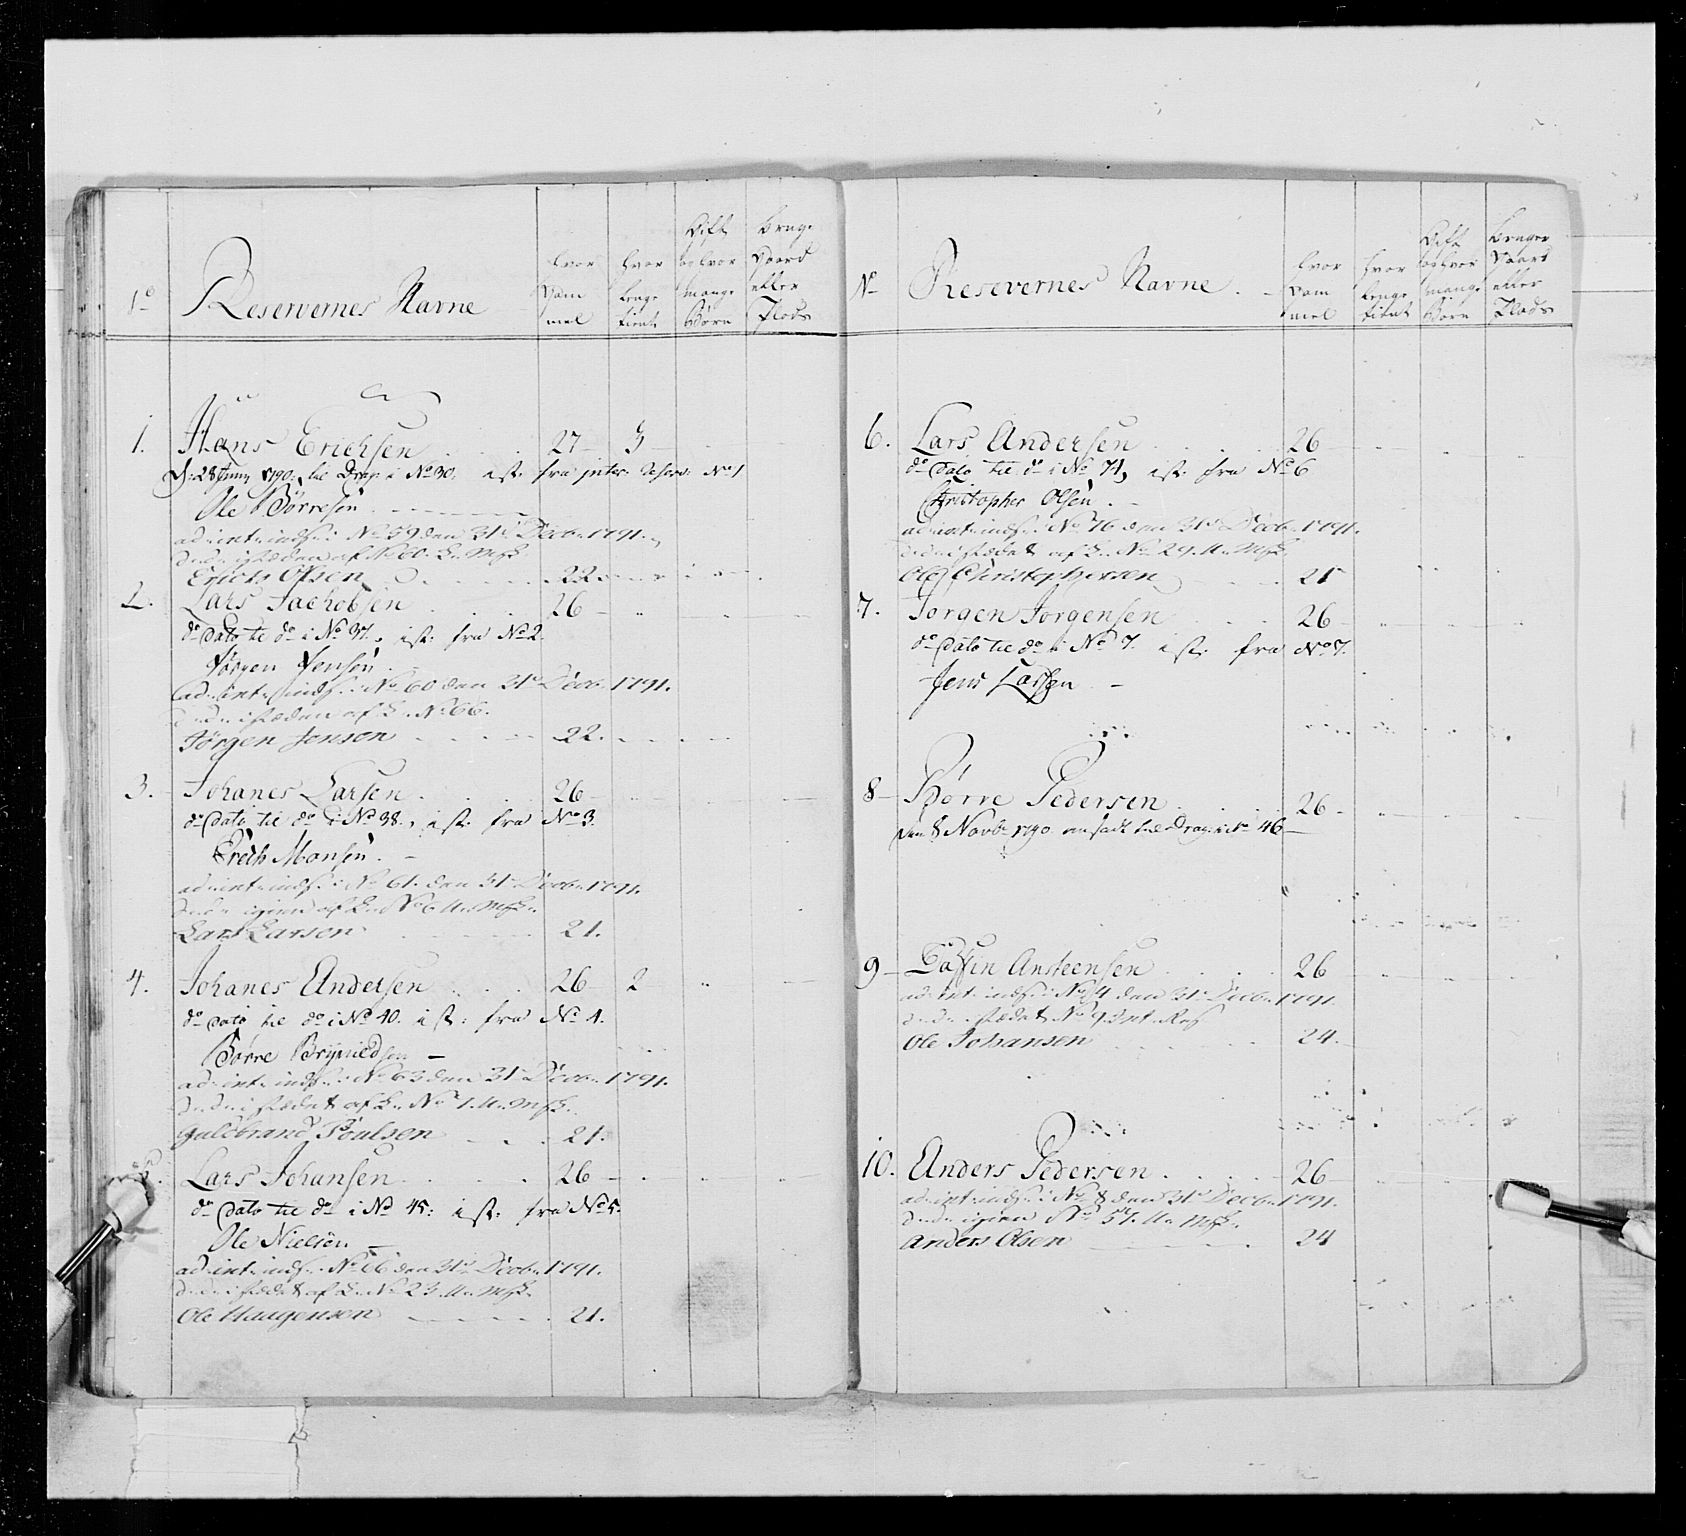 No
Reservernes Navne
hvor gammel
hvor lenge tient
Gift og hvor mange Børn
bruge Gaard eller Plads
1. Hans Erichsen 27 3
d: 28 Juny 1790. til Drag: i No 30. i st: fra inter: Reserv: No 1
Ole Børresen
ad int: inds: i No 59 den 31 Decb: 1791.
i stæden af No 60.
Erich Olsen 22
2. Lars Jachobsen 26
do Dato til do i No 37., i st: fra No 2.
Jørgen Jensen
ad int: inds: i No 60 den 31 Decb: 1791.
i stæden af No 66.
Jørgen Jensen 22.
3. Johanes Larsen 26
do Dato til do i No 38., i st: fra No 3.
Erich Monsen.
ad int: inds: i No 61. den 31 Decb: 1791.
igien af No 6
Lars Larsen 21.
4. Johanes Andersen 26 2
do Dato til do i No 40. i st: fra No 4.
Børre Brynildsen
ad int: inds: i No 63 den 31 Decb: 1791.
i stædet af No 1.
Guldbrand Poulsen 21.
5. Lars Johansen 26
do Dato til do i No 45: i st: fra No 5.
Ole Nielsen
ad int: inds: i No 66 den 31 Decb: 1791.
i stædet af No 23.
Ole Haagensen 21.
No
Reservernes Navne.
hvor gammel
hvor lenge tient
Gift og hvor mange Børn
bruger Gaard eller Plads
6. Lars Andersen 26
do Dato til do i No 71, i st: fra No 6
Christopher Olsen.
ad int: inds: i No 76 den 31 Decb: 1791.
i stædet af No 29.
Ole Christophersen 21
7. Jørgen Jørgensen 26
do Dato til do i No 7. i st: fra No 7.
Jens Larsen
8 Børre Pedersen 26
den 8 Novb: 1790 ansadt til Drag: i No 46
9 Ansteensen 26
ad int: inds: i No 4 den 31 Decb: 1791.
i stædet No 9 int: Res
Ole Johansen 24.
10. Anders Pedersen 26
ad int: inds: i No 8 den 31 Decb: 1791.
igien No 57.
Anders Olsen 24